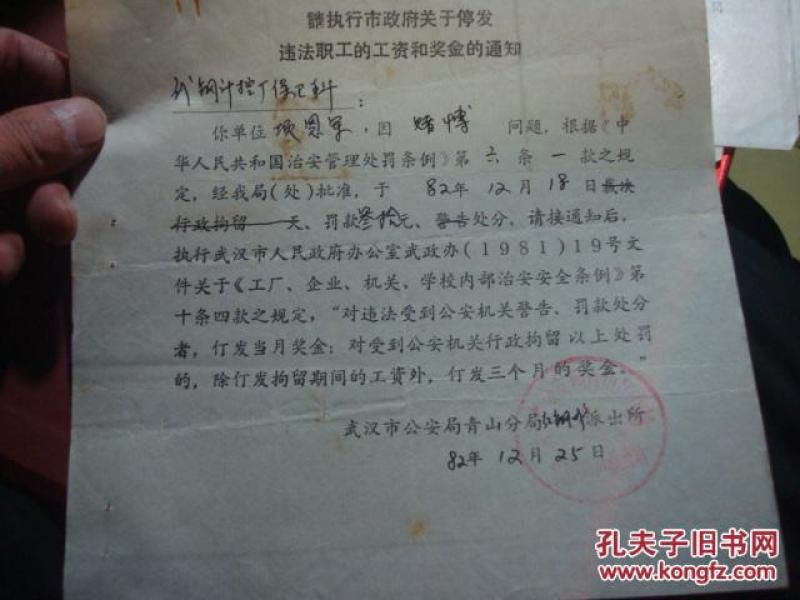 請执行市政府关于停发
违法职工的工资和奖金的通知
武钢计控厂保卫科：
你单位项恩军，因 赌博 问题，根据《中
华人民共和国治安管理处罚条例》第六条一款之规
定，经我局（处）批准，于82年12月18日裁决
行政拘留 天、罚款叁拾元、警告处分，请接通知后，
执行武汉市人民政府办公室武政办（1981）19号文
件关于《工厂、企业、机关、学校内部治安安全条例》第
十条四款之规定，“对违法受到公安机关警告、罚款处分
者，仃发当月奖金；对受到公安机关行政拘留以上处罚
的，除仃发拘留期间的工资外，仃发三个月的奖金。”
武汉市公安局青山分局 派出所
82年12月25日
孔夫子旧书网
www.kongfz.com